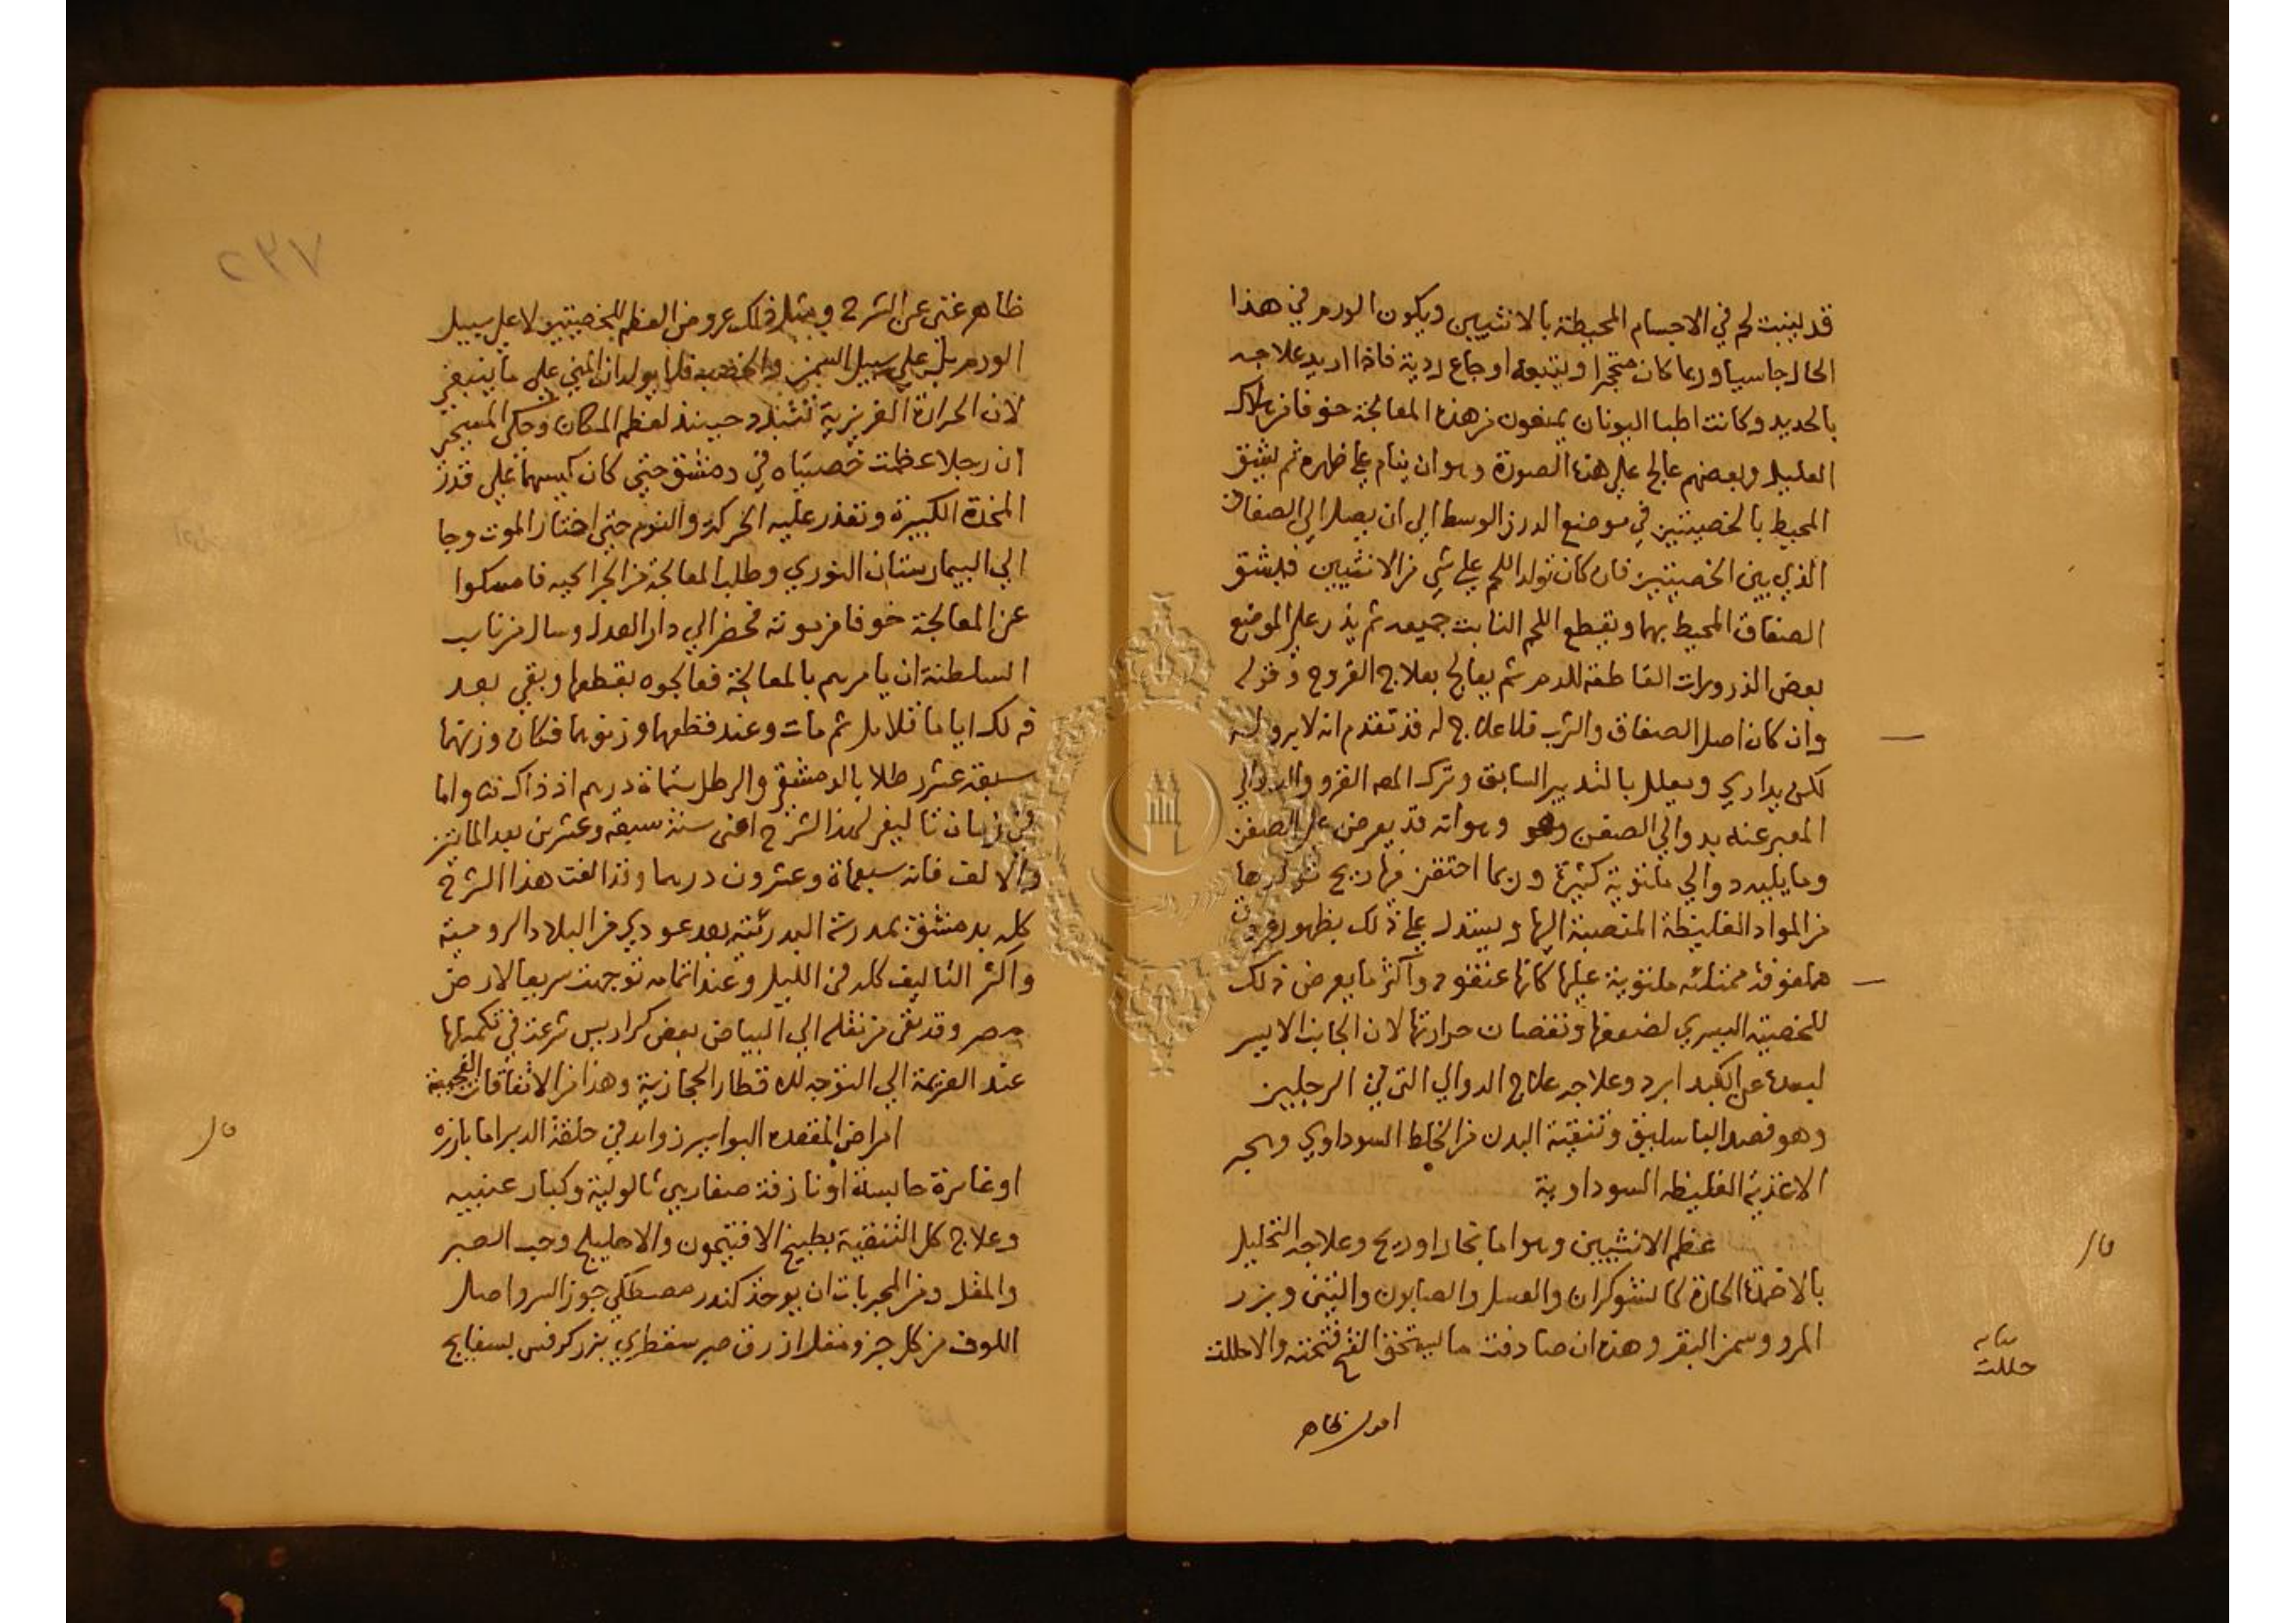 قد ينبت لحم في الاجسام المحيطة بالانثيين ويكون الورم في هذا
الحال جاسيا وربما كان متحجرا ويتبعه اوجاع ردية فاذا اريد علاجه
بالحديد وكانت اطبا اليونان يمنعون من هذه المعالجة خوفا من هلاك
العليل وبعضهم عالج على هذه الصورة وهو ان ينام على ظهره ثم يشق
المحيط بالخصيتين في موضع الدرز الوسط الي ان يصل الي الصفاق
الذي بين الخصيتين فان كان تولد اللحم على شي من الانثيين فليشق
الصفاق المحيط بهما ويقطع اللحم النابت جميعه ثم يذر على الموضع
بعض الذرورات القاطعة للدم ثم يعالج بعلاج القروح وقوله
وان كان اصل الصفاق والثرب فلا علاج له قد تقدم انه لا برو له
لكن يداري ويعلل بالتدبير السابق وترك المص القرو والدوالي
المعبر عنه بدوالي الصفن وهو انه قد يعرض على الصفن
وما يليه دوالي ملتوية كثيرة وربما احتقن فيها ريح تولدها
من المواد الغليظة المنصبة اليها ويستدل على ذلك بظهور عروق
ملفوفة ممتلئه ملتوية عليها كانها عنقود واكثر ما يعرض ذلك
للخصية اليسري لضعفها ونقصان حرارتها لان الجانب الايسر
لبعده عن الكبد ابرد وعلاجه علاج الدوالي التي في الرجلين
وهو فصد الباسليق وتنقية البدن من الخلط السوداوي وهجر
الاغذية الغليظه السوداوية
عظم الانثيين وهو اما بخار او ريح وعلاجه التحليل
بالاضمدة الحارة كالشوكران والعسل والصابون والتين وبزر
المرو وسمن البقر وهذه ان صادفت ما يستحق الفتح فتحته والا حللت
حللت
اقول ظاهر
٢٣٧
ظاهر غني عن الشرح ومثل ذلك عروض العظم للخصيتين لا على سبيل
الورم بل على سبيل السمن والخصب فلما يولدان المني على ما ينبغي
لان الحرارة الغريزية تتبدد حينئذ لعظم المكان وحكى المسيحي
ان رجلا عظمت خصيتاه في دمشق حتي كان كيسهما على قدر
المخدة الكبيرة وتعذر عليه الحركة والنوم حتى اختار الموت وجا
الي البيمارستان النوري وطلب المعالجة من الجرايحيه فامسكوا
عن المعالجة خوفا من موته فحضر الي دار العدل وسال من نايب
السلطنة ان يامرهم بالمعالجة فعالجوه بقطعها وبقي بعد
ذلك اياما قلايل ثم مات وعند قطعهما وزنوهما فكان وزنهما
سبعة عشر رطلا بالدمشقي والرطل ستماة درهم اذ ذاك واما
في زمان تاليفي لهذا الشرح اعني سنة سبعة وعشرين بعد المايتين
والالف فانه سبعماة وعشرون درهما وقد الفت هذا الشرح
كله بدمشق بمدرسة البدرئية بعد عودي من البلاد الرومية
واكثر التاليف كله في الليل وعند اتمامه توجهت سريعا لارض
مصر وقد بقى من نقله الي البياض بعض كراريس شرعت في تكملتها
عند العزيمة الي التوجه للاقطار الحجازية وهذا من الاتفاقات العجيبة
امراض المقعده البواسير زوايد في حلقة الدبر اما بارزه
او غايرة حابسة او نازفة صغار هي ثالولية وكبار عنبيه
وعلاج كل التنقية بطبيخ الافتيمون والاهليلج وحب الصبر
والمقل ومن المجربات ان يوخذ كندر مصطكي جوز السرو اصل
اللوف من كل جزو مقل ازرق صبر سقطري بزر كرفس بسفايج